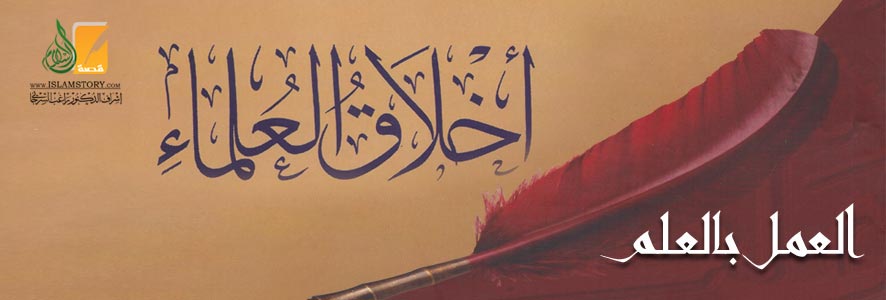 قصة الإسلام
WWW.ISLAMSTORY.COM
إشراف الدكتور راغب السرجاني
أَخْلَاقُ العُلَمَاءِ
العمل بالعلم